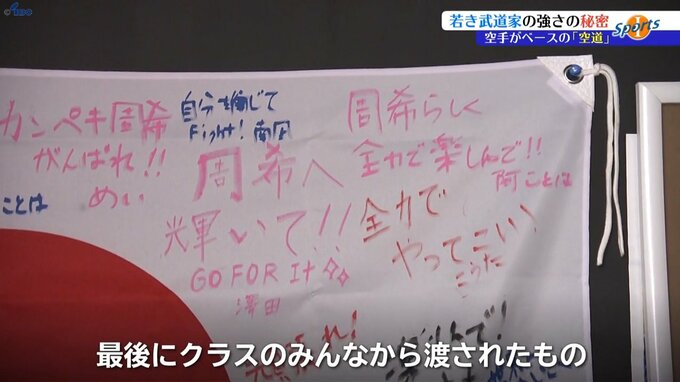 若き武道家の強さの秘密
空手がベースの「空道」
Sports
カンペキ周希
がんばれ!!
めい
ことは
自分を信じて
Fight! 南風
周希へ
輝いて!!
GO FOR It
澤田
周希らしく
全力で楽しんで!!
阿ことは
全力で
やってこい!
こうた
最後にクラスのみんなから渡されたもの